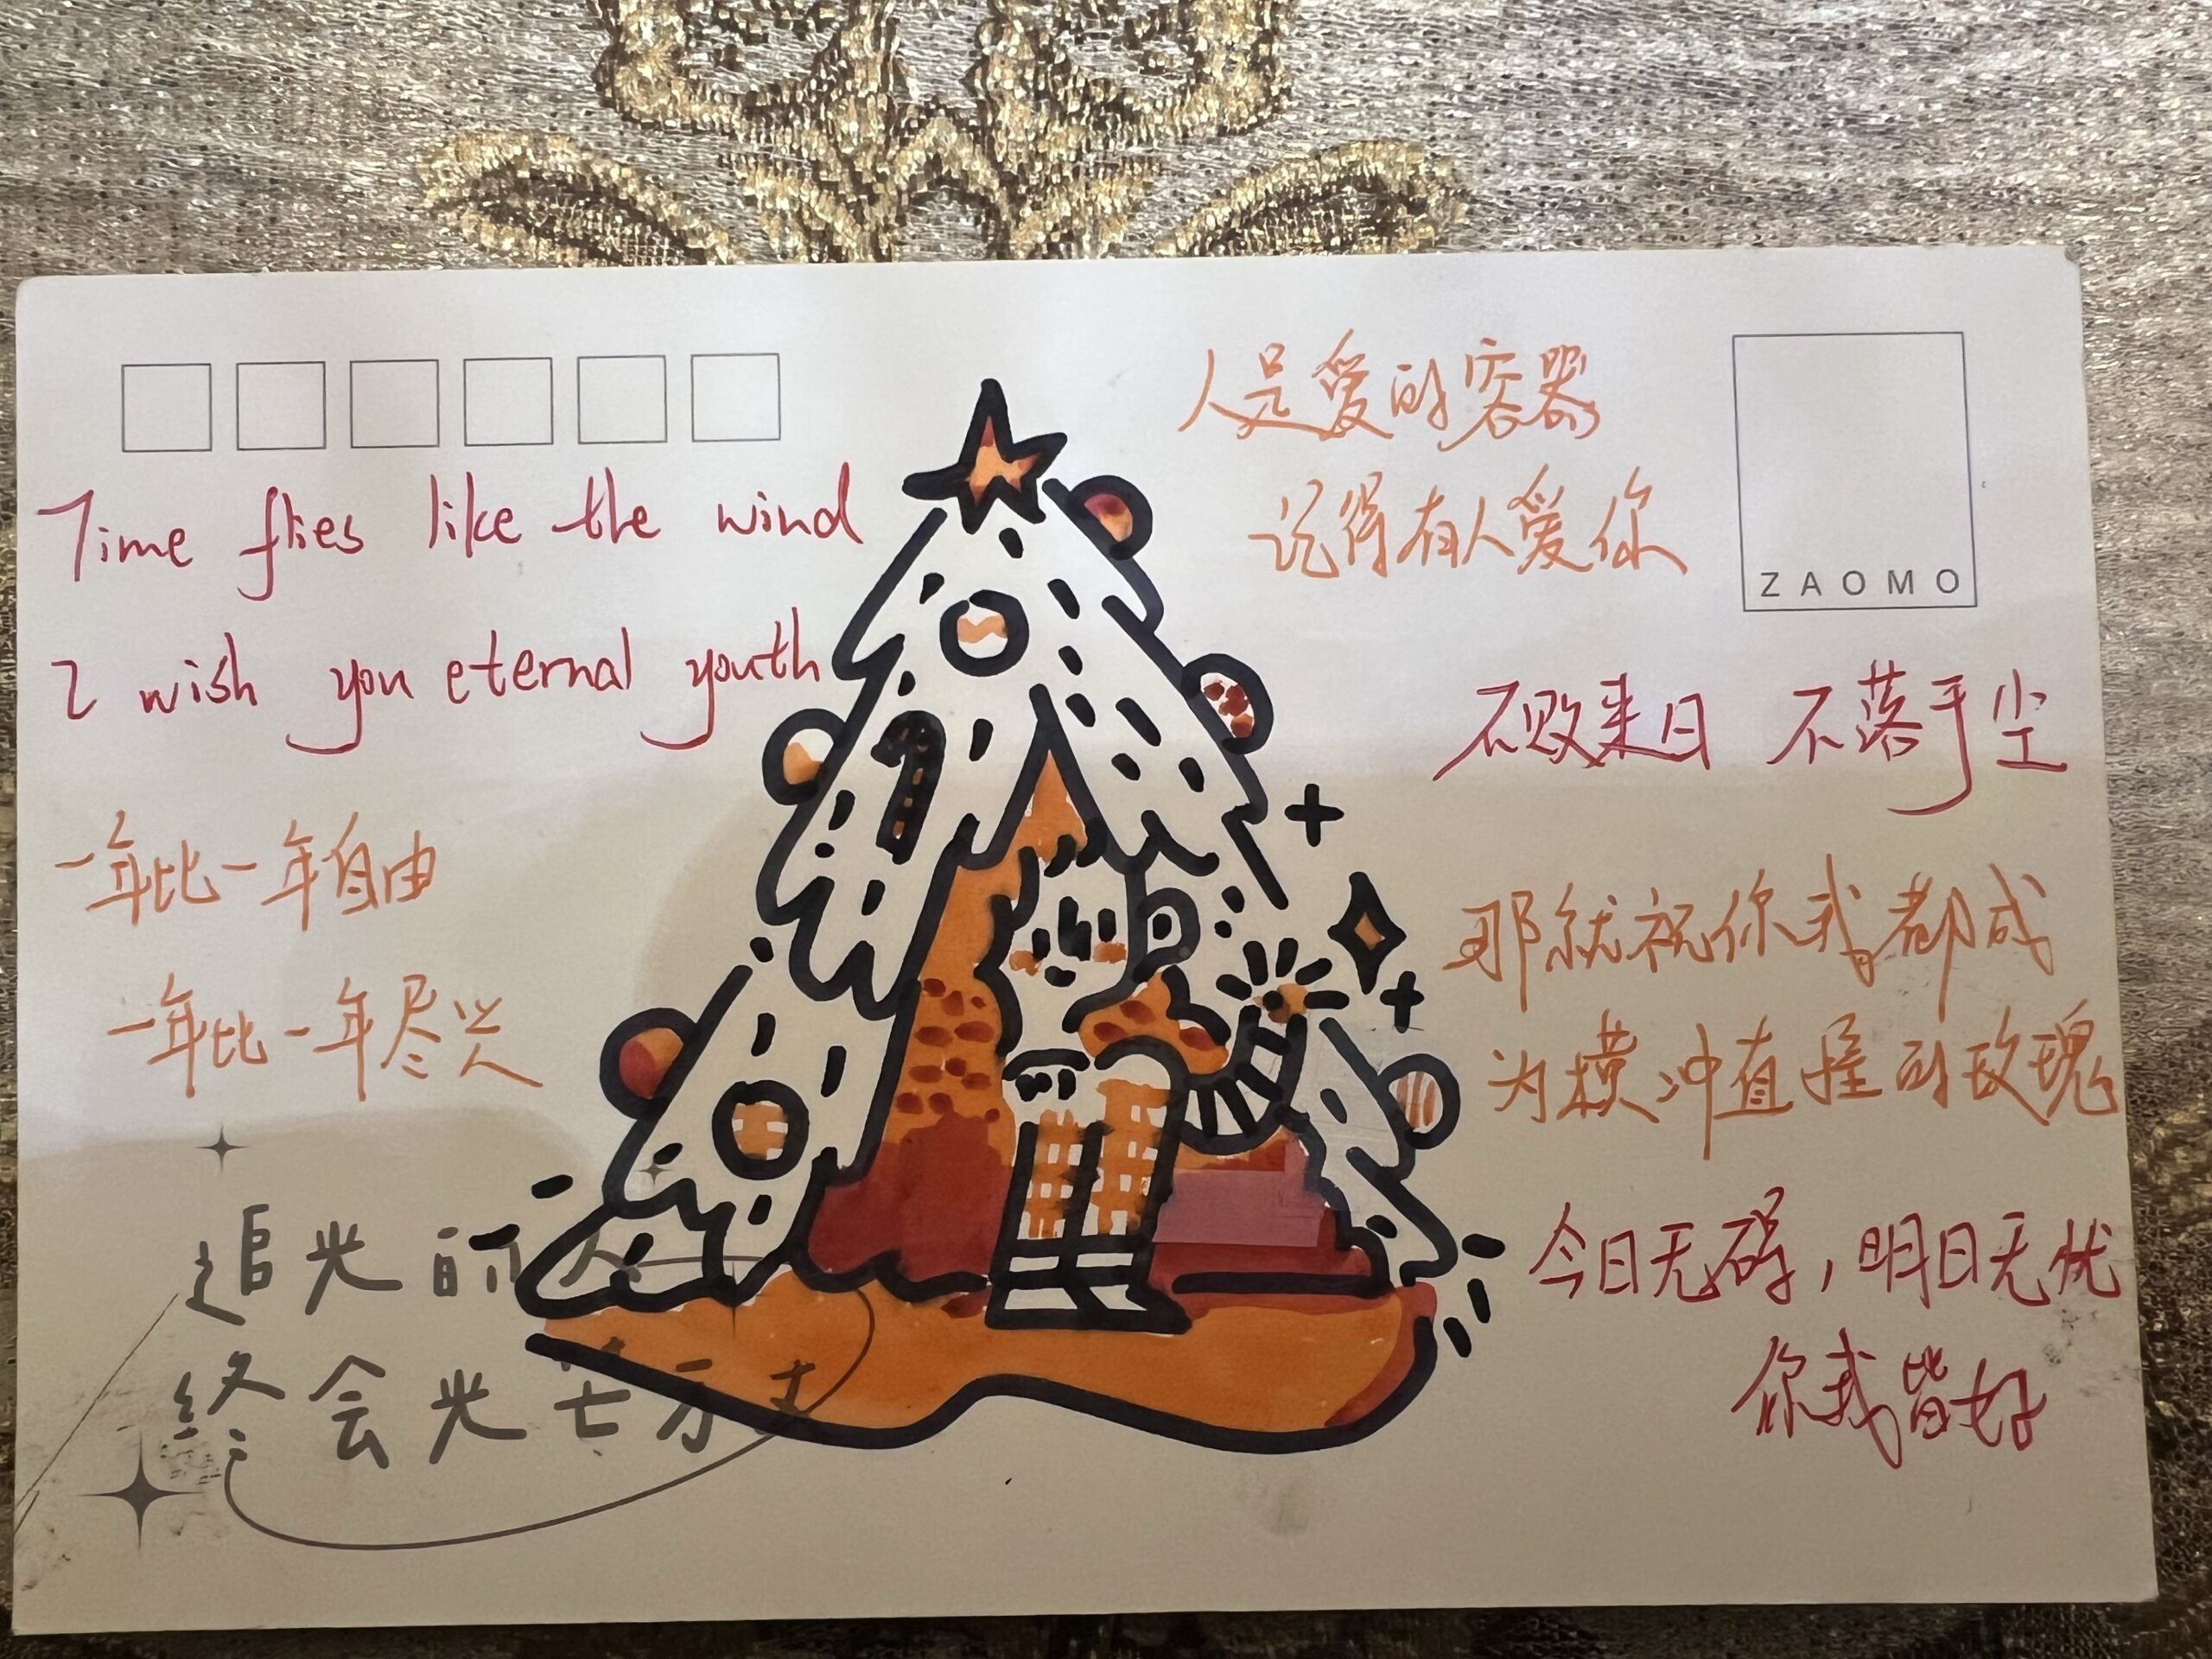 Time flies like the wind
I wish you eternal youth
一年比一年自由
一年比一年尽兴
追光的人
终会光芒万丈
人是爱的容器
记得有人爱你
ZAOMO
不败来日 不落于尘
那就祝你我都成
为横冲直撞的玫瑰
今日无碍，明日无忧
你我皆好